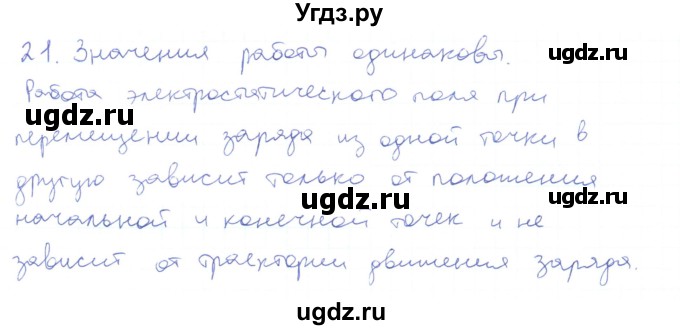 Угдз.ру
21. Значения работы одинаковы.
ugdz.ru
Работа электростатического поля при
ugdz.ru ugdz.ru
перемещении заряда из одной точки в
другую зависит только от положения
ugdz.ru ugdz.ru
начальной и конечной точек и не
зависит от траектории движения заряда.
ugdz.ru ugdz.ru
ugdz.ru